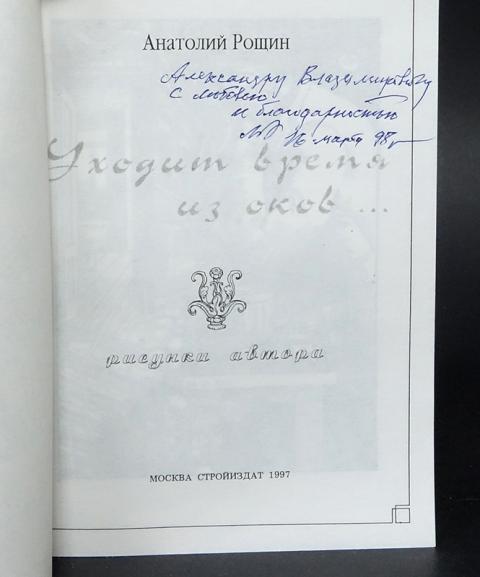 Анатолий Рощин
Александру Владимировичу
с любовью
и благодарностью
16 марта 98 г
Уходит время
из оков ...
рисунки автора
МОСКВА СТРОЙИЗДАТ 1997